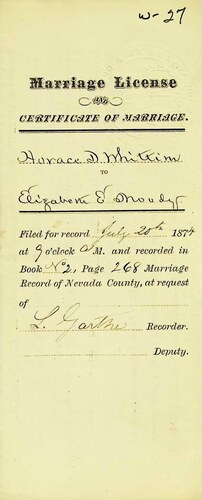 W-27
Marriage License
AND
CERTIFICATE OF MARRIAGE.
Horace D. Whittim
TO
Elizabeth E Moody
Filed for record July 20th 1874
at 9 o'clock A M. and recorded in
Book No 2, Page 268 Marriage
Record of Nevada County, at request
of
L. Garthe Recorder.
Deputy.